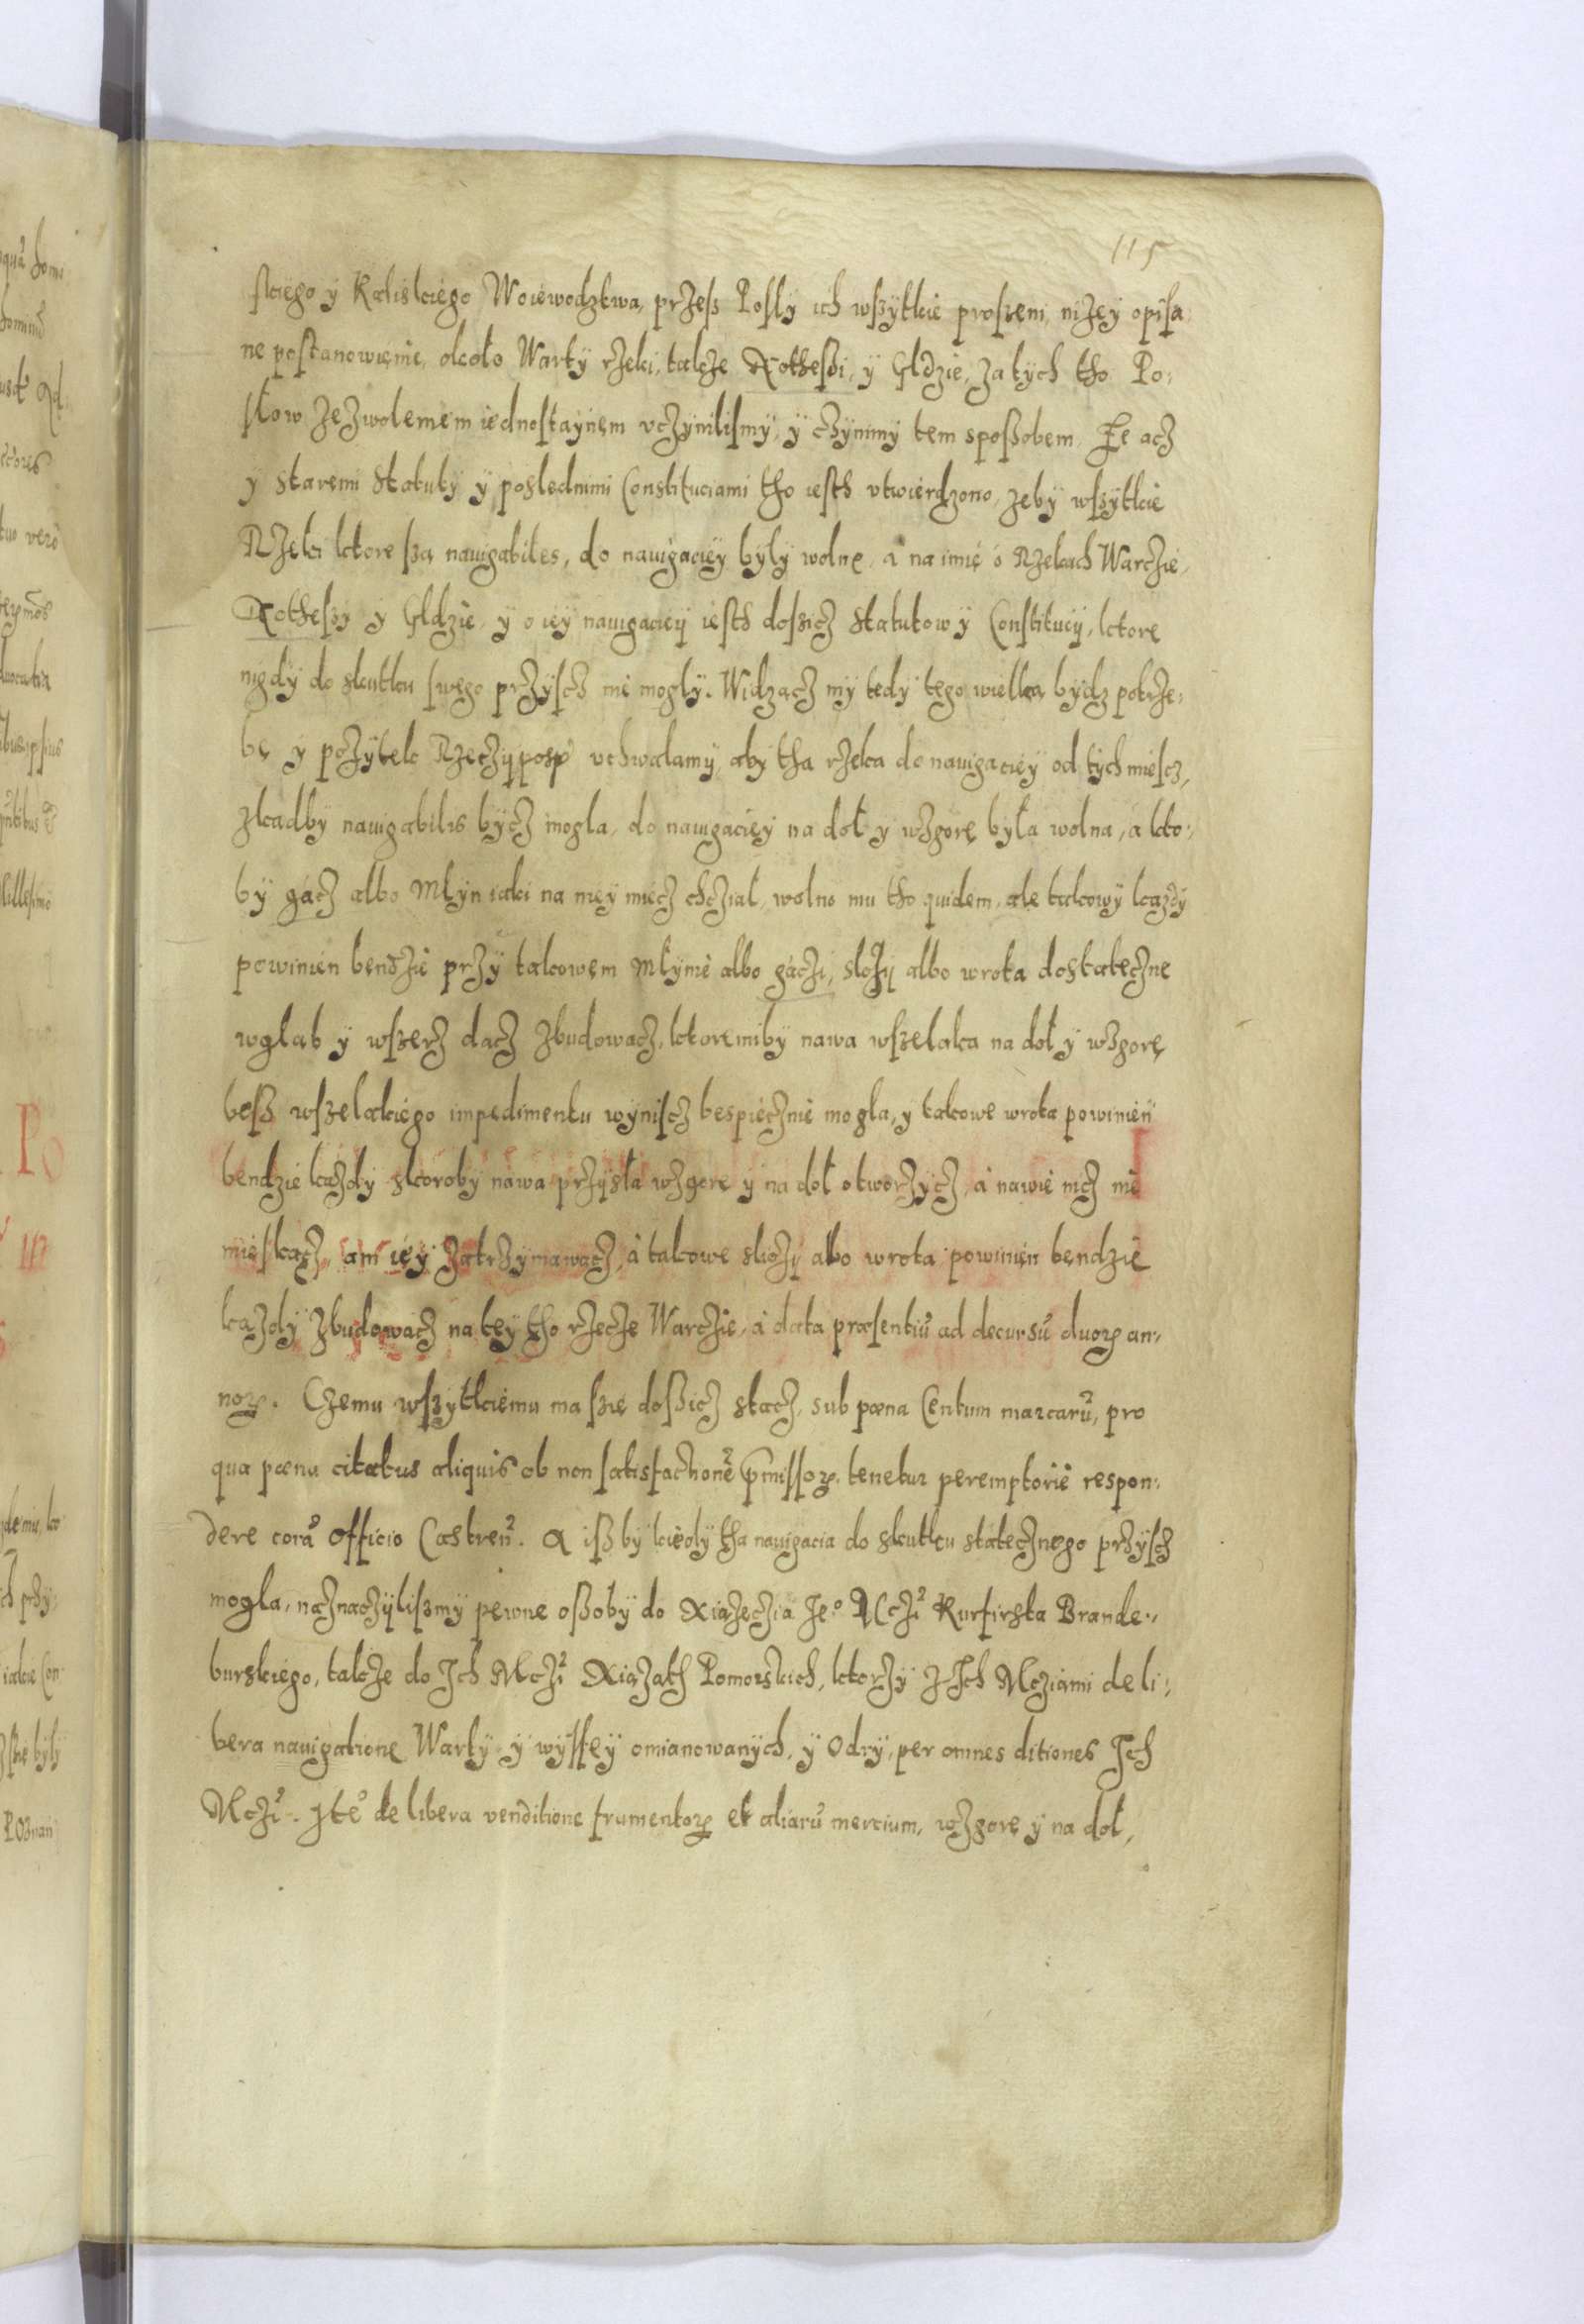 115
skiego y Kaliskiego Woiewodztwa, przess Posly ich wszytkie proszeni, nizey opisa
ne postanowienie, około Warty rzeki, takze Nothessi, y Gldzie, za tych tho Po:
słow zezwolemem iednostaynem vczynilismy, y czynimy tem sposſobem. Ze acz
y staremi Statuty y poslednimi Constituciami tho iesth vtwierdzono, zeby wszytkie
Rzeki ktore sza nauigabiles, do nauigaciey były wolne, a na imię o Rzekach Warczie,
Nothesſy y Gldzie, y o iey nauigaciey iesth doszicz Statutow y Constitucij, ktore
nigdy do skutku swego przyscz nie mogly. Widzacz my tedy tego wielką bydz potrze:
bę y pozytek Rzeczyposp vchwalamy, aby tha rzeka do nauigaciey od tych miescz,
zkadby nauigabilis bycz mogla, do nauigaciey na doł y wzgorę była wolna, a kto:
by gacz albo Mlyn iaki na niey miecz chczial, wolno mu tho quidem, ale takowy kazdy
powinien bendzie przy takowem Młynie albo gaczi, slozy albo wrota dostateczne
wgłab y wszerz dacz zbudowacz, ktoremiby nawa wszelaka na doł y wzgorę
bess wszelakiego impedimentu wyniscz bespiecznie mogla, y takowe wrota powinien
bendzie kazdy skoroby nawa przysła wzgore y na doł otworzycz, a nawie nicz nie
mieskacz, ani iey zatrzymawacz, a takowe sluzy albo wrota powinien bendzie
kazdy zbudowacz na tey tho rzecze Warczie, a data præsentiũ ad decursũ duoꝝ an:
noꝝ. Czemu wszytkiemu ma szie dosſicz stacz, sub pœna Centum marcarũ, pro
qua pœna citatus aliquis ob non satisfactionẽ p̃missoꝝ, tenetur peremptorie respon:
dere corã Officio Castreñ. A issby kiedy tha nauigacia do skutku statecznego przyscz
mogla, naznaczylismy pewne osſoby do Xiazęczia Je° Mczi Kurfirsta Brande:
burskiego, takze do Ich Mczi Xiazath Pomorskich, ktorzy z Ich Mcziami de li:
bera nauigatione Warty y wyssey omianowanych, y Odry, per omnes ditiones Ich
Mczi. Itẽ de libera venditione frumentoꝝ et aliarũ mercium, wzgorę y na doł,